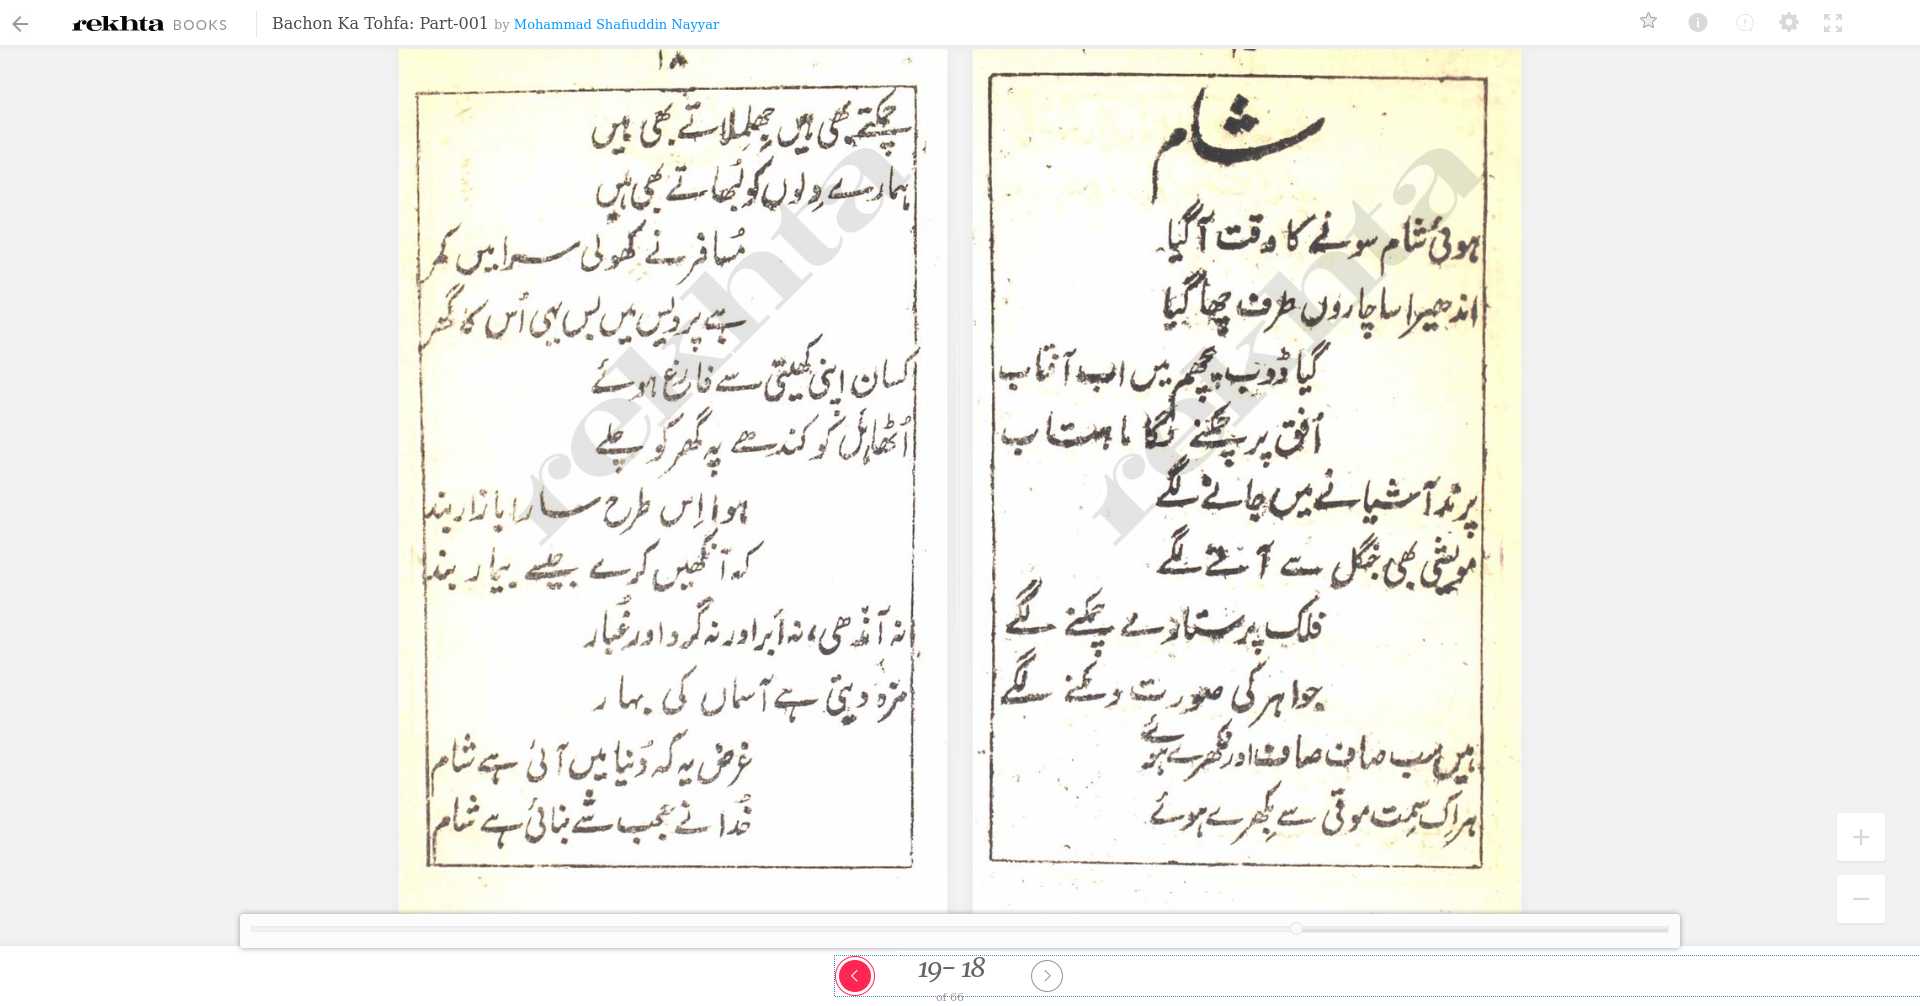 rekhta BOOKS Bachon Ka Tohfa: Part-001 by Mohammad Shafiuddin Nayyar
شام
ہوئی شام سونے کا وقت آ گیا
اندھیرا سا چاروں طرف چھا گیا
گیا ڈوب پچھم میں اب آفتاب
اُفق پر چمکنے لگا ماہتاب
پرند آشیانے میں جانے لگے
مویشی بھی جنگل سے آنے لگے
فلک پر ستارے چمکنے لگے
جواہر کی صورت دمکنے لگے
ہیں سب صاف صاف اور نکھرے ہوئے
ہر اِک سِمت موتی سے بکھرے ہوئے
۱۸
چمکتے بھی ہیں جھِلمِلاتے بھی ہیں
ہمارے دِلوں کو لُبھاتے بھی ہیں
مُسافر نے کھولی سرا میں کمر
ہے پردیس میں بس یہی اُس کا گھر
کسان اپنی کھیتی سے فارغ ہوئے
اُٹھا ہَل کو کندھے پہ گھر کو چلے
ہوا اِس طرح سارا بازار بند
کہ آنکھیں کرے جیسے بیمار بند
نہ آندھی، نہ اَبر اور نہ گرد اور غُبار
مزہ دیتی ہے آسماں کی بہار
غرض یہ کہ دُنیا میں آئی ہے شام
خُدا نے عجب شے بنائی ہے شام
rekhta
rekhta
19- 18
of 66